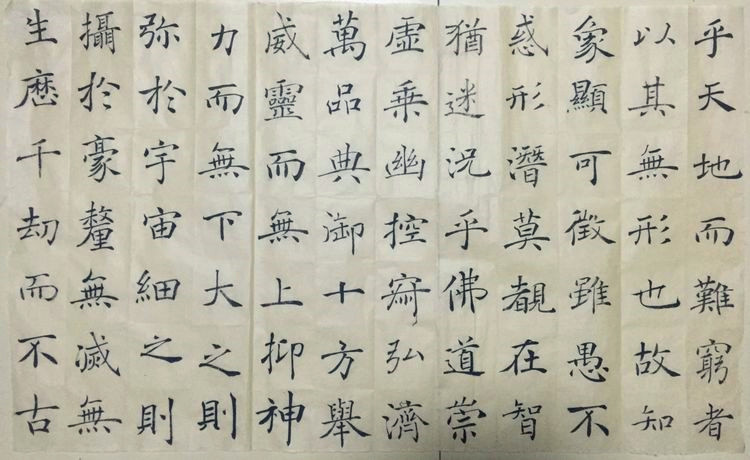 乎天地而難窮者
以其無形也故知
象顯可徵雖愚不
惑形潛莫覩在智
猶迷況乎佛道崇
虛乗幽控寂弘濟
萬品典御十方舉
威靈而無上抑神
力而無下大之則
弥於宇宙細之則
攝於豪釐無滅無
生歷千劫而不古